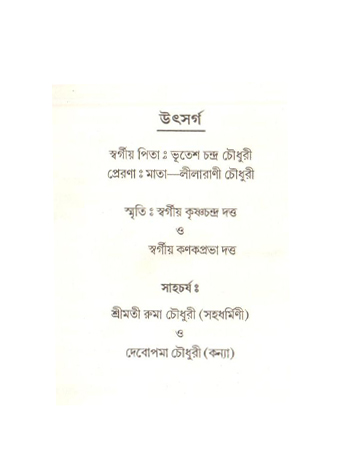 উৎসর্গ
স্বর্গীয় পিতা ঃ ভূতেশ চন্দ্র চৌধুরী
প্রেরণা ঃ মাতা—লীলারাণী চৌধুরী
স্মৃতি ঃ স্বর্গীয় কৃষ্ণচন্দ্র দত্ত
ও
স্বর্গীয় কণকপ্রভা দত্ত
সাহচর্য ঃ
শ্রীমতী রুমা চৌধুরী (সহধর্মিণী)
ও
দেবোপমা চৌধুরী (কন্যা)